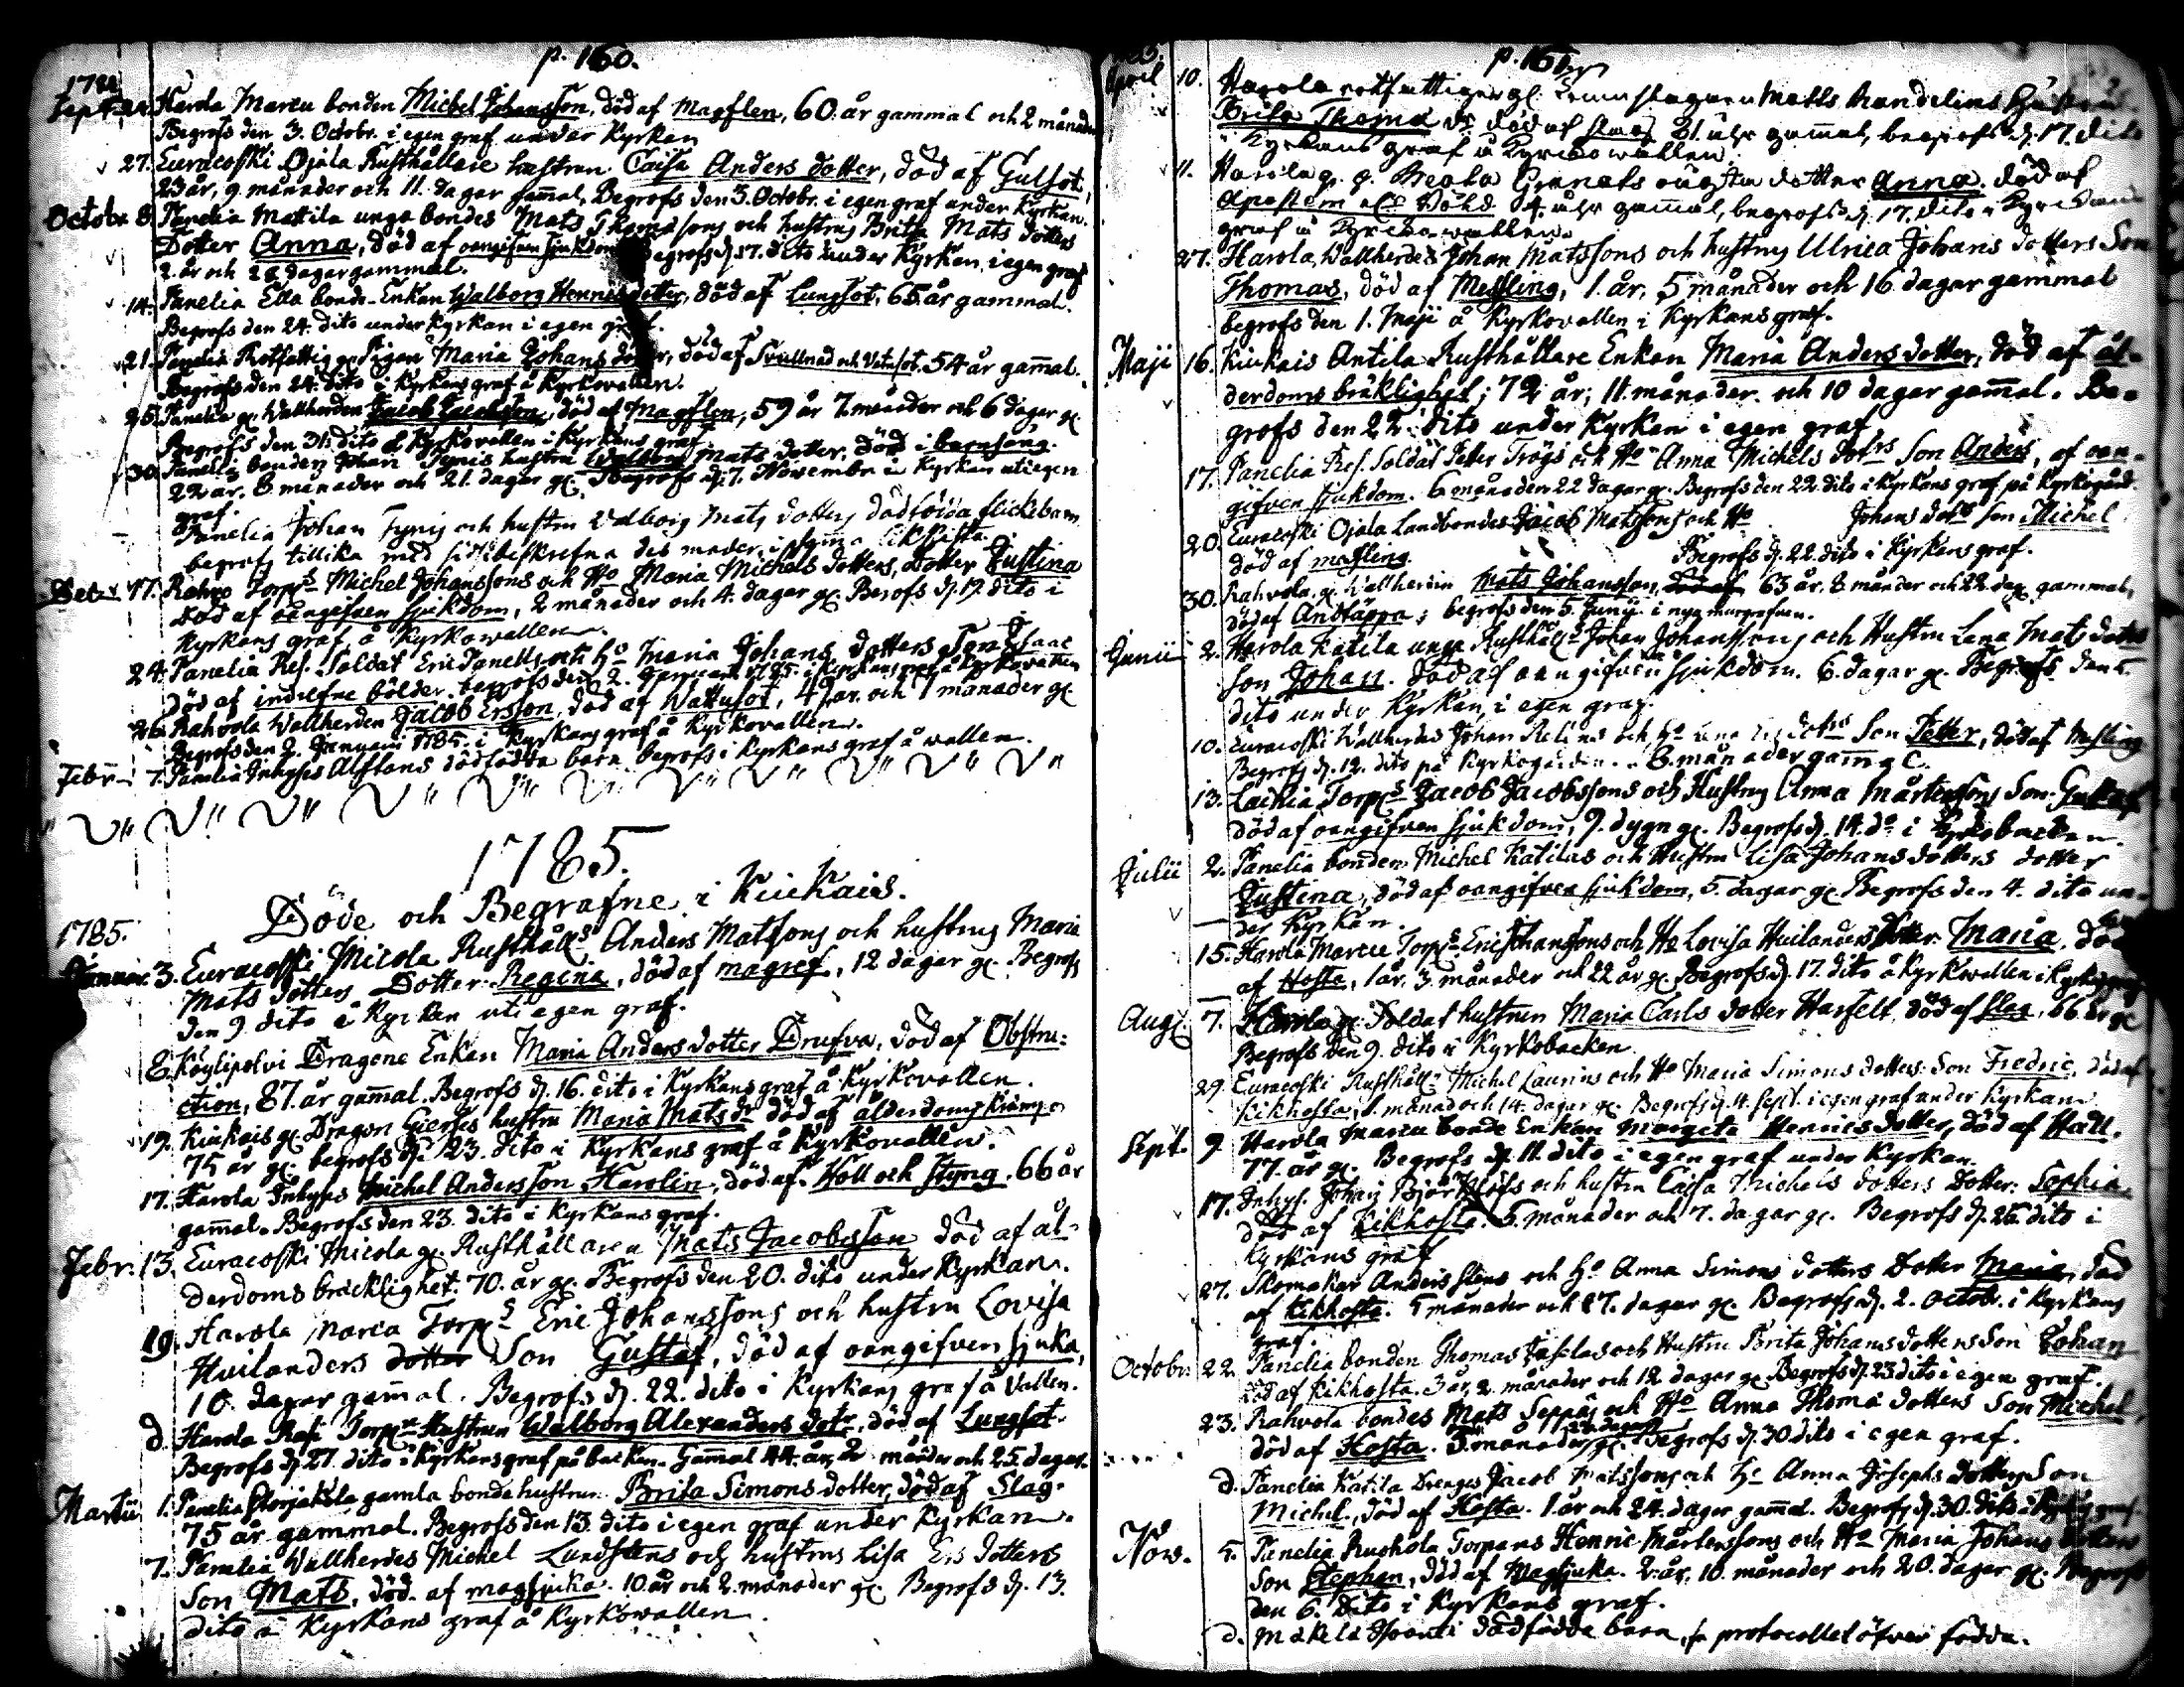 p. 160.
1784
Sept. Harola Marcu bonden Michel Johansson, död af Magflen, 60. år gammal och 2 månader
Begrofs den 3. Octobr. i egen graf under Kyrkan
27. Euracoski Ojala Rusthållare hustrun Caisa Anders dotter, död af Gulsot,
23 år, 9. månader och 11. dagar gamal, Begrofs den 3. Octobr. i egen graf under Kyrkan.
Octobr. 8. Panelia Mattila unga bondes Mats Thomassons och hustrus Brita Mats dotters
Dotter Anna, död af oangifven sjukdom Begrofs d. 17. dito under Kyrkan i egen graf
2. år och 28 dagar gammal.
14. Panelia Ella bonde-Enkan Walborg Henrics dotter, död af Lungsot, 65 år gammal.
Begrofs den 24. dito under Kyrkan i egen graf.
21. Panelia Rotfattig Pigan Maria Johans dotter, död af Svullnad och Vatusot. 54 år gamal.
Begrofs den 24. dito i Kyrkans graf å Kyrkovallen.
25. Panelia gl. Wallherden Jacob Jacobsson, död af Magflen, 59 år 7. månader och 6 dagar gl.
Begrofs den 31. dito å Kyrkovallen i Kyrkans graf
30. Panelia bonden Johan Tynis hustru Walborg Mats dotter, död i barnsäng.
22 år. 8. månader och 21. dagar gl. Begrofs d. 7. Novembr. i Kyrkan uti egen
graf.
Panelia Johan Tynis och hustru Valborg Mats dotters dödfödda flickebarn
begrofs tillika med sidstbeskrefna des moder i samma likkista.
Dec. 17. Rahvo Torps Michel Johanssons och Ho Maria Michels dotters, Dotter Justina
död af oangifven sjukdom, 2 månader och 4. dagar gl. Begrofs d. 19. dito i
Kyrkans graf å Kyrkowallen.
24. Panelia Res. Soldat Eric Panells och Ho Maria Johans dotters Son Isaac
död af indrefne bölder. begrofs den 2. Januarii 1785. i Kyrkans graf å Kyrkovallen
26. Rahvola Wallherden Jacob Ersson, död af Wattusot, 49 år. och 7 månader gl.
Begrofs den 2. Januarii 1785. i Kyrkans graf å Kyrkovallen.
Febr. 7. Panelia Inhyses Alftans dödfödda barn begrofs i Kyrkans graf å wallen.
1785.
Döde och Begrafne i Kiukais.
1785.
Januar. 3. Euracoski Micola Rusthålls Anders Matssons och hustrus Maria
Mats dotters Dotter Regina, död af magref, 12 dagar gl. Begrofs
den 9. dito i Kyrkan uti egen graf.
8. Köylipolvi Dragone Enkan Maria Anders dotter Drufva, död af Obstru-
ction, 87. år gamal. Begrofs d. 16. dito i Kyrkans graf å Kyrkovallen.
19. Kiukais gl. Dragon Gierses hustru Maria Mats dr död af ålderdoms krämpor
75 år gl. begrofs d. 23. dito i Kyrkans graf å Kyrkovallen.
17. Harola Inhyses Michel Andersson Harolin, död af Håll och styng. 66 år
gamal. Begrofs den 23. dito i Kyrkans graf.
Febr. 13. Euracoski Micola gl. Rusthållaren Mats Jacobsson död af ål-
derdoms bräcklighet. 70. år gl. Begrofs den 20. dito under Kyrkan.
19. Harola Marcu Torps Eric Johanssons och hustru Lovisa
Huilanders dotter Son Gustaf, död af oangifven sjuka,
10. dagar gamal. Begrofs d. 22. dito i Kyrkans graf å Vallen.
d. Harola Rasi Torp. Hustrun Walborg Alexanders dotr, död af Lungsot
Begrofs d. 27. dito i Kyrkans graf på backen. Gamal 44. år, 2 månader och 25. dagar.
Martii 1. Panelia Storjakola gamla bonde hustrun Brita Simons dotter, död af Slag.
75 år gammal. Begrofs den 13. dito i egen graf under Kyrkan.
7. Panelia Wallherdes Michel Lundstens och hustrus Lisa Ers dotters
Son Mats, död af magsjuka. 10. år och 2. månader gl. Begrofs d. 13.
dito i Kyrkans graf å Kyrkowallen.
p. 161.
April 10. Harola rotfattigen gl. Matts Randelins hustru
Brita Thomæ dr död af slag 81. åhr gamal, begrofs d. 17. dito
i Kyrkans graf å Kyrkowallen.
11. Harola Beata Granats dotter Anna. död af
Apostem 4. åhr gamal, begrofs d. 17. dito i Kyrkans
graf å Kyrkowallen.
27. Harola Wallherdes Johan Matssons och hustrus Ulrica Johans dotters Son
Thomas, död af Messling, 1. år, 5 månader och 16 dagar gammal
begrofs den 1. Maji å Kyrkovallen i Kyrkans graf.
Maji 16. Kiukais Antila Rusthållare Enkan Maria Anders dotter, död af ål-
derdoms bräklighet; 72 år; 11. månader och 10 dagar gamal. Be-
grofs den 22. dito under Kyrkan i egen graf
17. Panelia Res. Soldat Petter Trögs och Ho Anna Michels dotrs Son Anders, af oan-
gifven sjukdom. 6 månader 22 dagar gl. Begrofs den 22. dito i Kyrkans graf på Kyrkogård.
20. Euracoski Ojala Landbondes Jacob Matssons och Ho Johans dotrs son Michel
död af messling. Begrofs d. 22. dito i Kyrkans graf.
30. Rahvola gl. Wallherden Mats Johansson, död af 63 år. 8. månader och 22 dag. gammal,
död af Andtäppa; begrofs den 5. Junii i nya murgrafven.
Junii 2. Harola Katila unga Rusthålls Johan Johanssons och Hustru Lena Mats dotters
Son Johan. död af oangifven sjukdom. 6. dagar gl. Begrofs den 5.
dito under Kyrkan i egen graf.
10. Euracoski Wallherdes Johan Relins och Ho dotrs Son Petter, död af Mesling
Begrofs d. 12. dito på Kyrkogården. 8. månader gamal.
13. Lachia Torps Jacob Jacobssons och Hustrus Anna Mårtensdotrs Son Gustaf
död af oangifven sjukdom, 9. dygn gl. Begrofs d. 14. do i Kyrkobacken.
Julii 2. Panelia bonden Michel Katilas och Hustru Lisa Johans dotters dotter
Justina, död af oangifven sjukdom, 5. dagar gl. Begrofs den 4. dito un-
der Kyrkan.
15. Harola Marcu Torps Eric Johanssons och Ho Lovisa Huilanders dotter Maria. död
af Hosta, 1 år. 3. månader och 22 år gl. Begrofs d. 17. dito å Kyrkovallen i Kyrkans graf
Aug. 7. Harola gl. Soldat hustrun Maria Carls dotter Harfelt död af slag. 66 år gl
Begrofs den 9. dito i Kyrkobacken.
29. Euracoski Rusthålls Michel Laurins och Ho Maria Simons dotters Son Fredric, död af
kikhosta, 1. månad och 14. dagar gl. Begrofs d. 4. Sept. i egen graf under Kyrkan.
Sept. 9. Harola Marcu bonde Enkan Margeta Henrics dotter, död af Håll.
77. år gl. Begrofs d. 11. dito i egen graf under Kyrkan.
17. Inhys. Johan Björklöfs och hustru Caisa Michels dotters dotter Sophia
död af Kikhosta. 5. månader och 7. dagar gl. Begrofs d. 25. dito i
Kyrkans graf
27. Skomakar Anders Stens och Ho Anna Simons dotters Dotter Maria, död
af Kikhosta. 5 månader och 27. dagar gl. Begrofs d. 2. Octobr. i Kyrkans
graf.
Octobr. 22. Panelia bonden Thomas och Hustru Brita Johans dotters Son Johan
död af kikhosta. 3 år, 2. månader och 12 dagar gl. Begrofs d. 23 dito i egen graf.
23. Rahvola bondes Mats Seppäs och Ho Anna Thomæ dotters Son Michel,
död af Hosta. 3. månader gl. Begrofs d. 30 dito i egen graf.
d. Panelia Katila Drenges Jacob Matssons och Ho Anna Josephs dotters Son
Michel, död af Hosta. 1. år och 24. dagar gamal. Begrofs d. 30. dito i Kyrkans graf.
Nov. 5. Panelia Ruohola Torpares Henric Mårtenssons och Ho Maria Johans dotters
Son Stephan, död af Magsjuka. 2. år. 10. månader och 20. dagar gl. Begrofs
den 6. dito i Kyrkans graf.
d. Mäkelä dödfödda barn, se protocollet öfver födde.